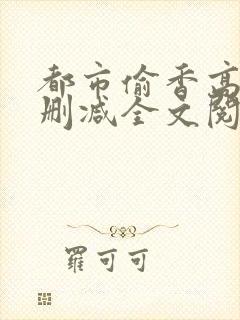 都市偷香高
删减全文阅
羅可可